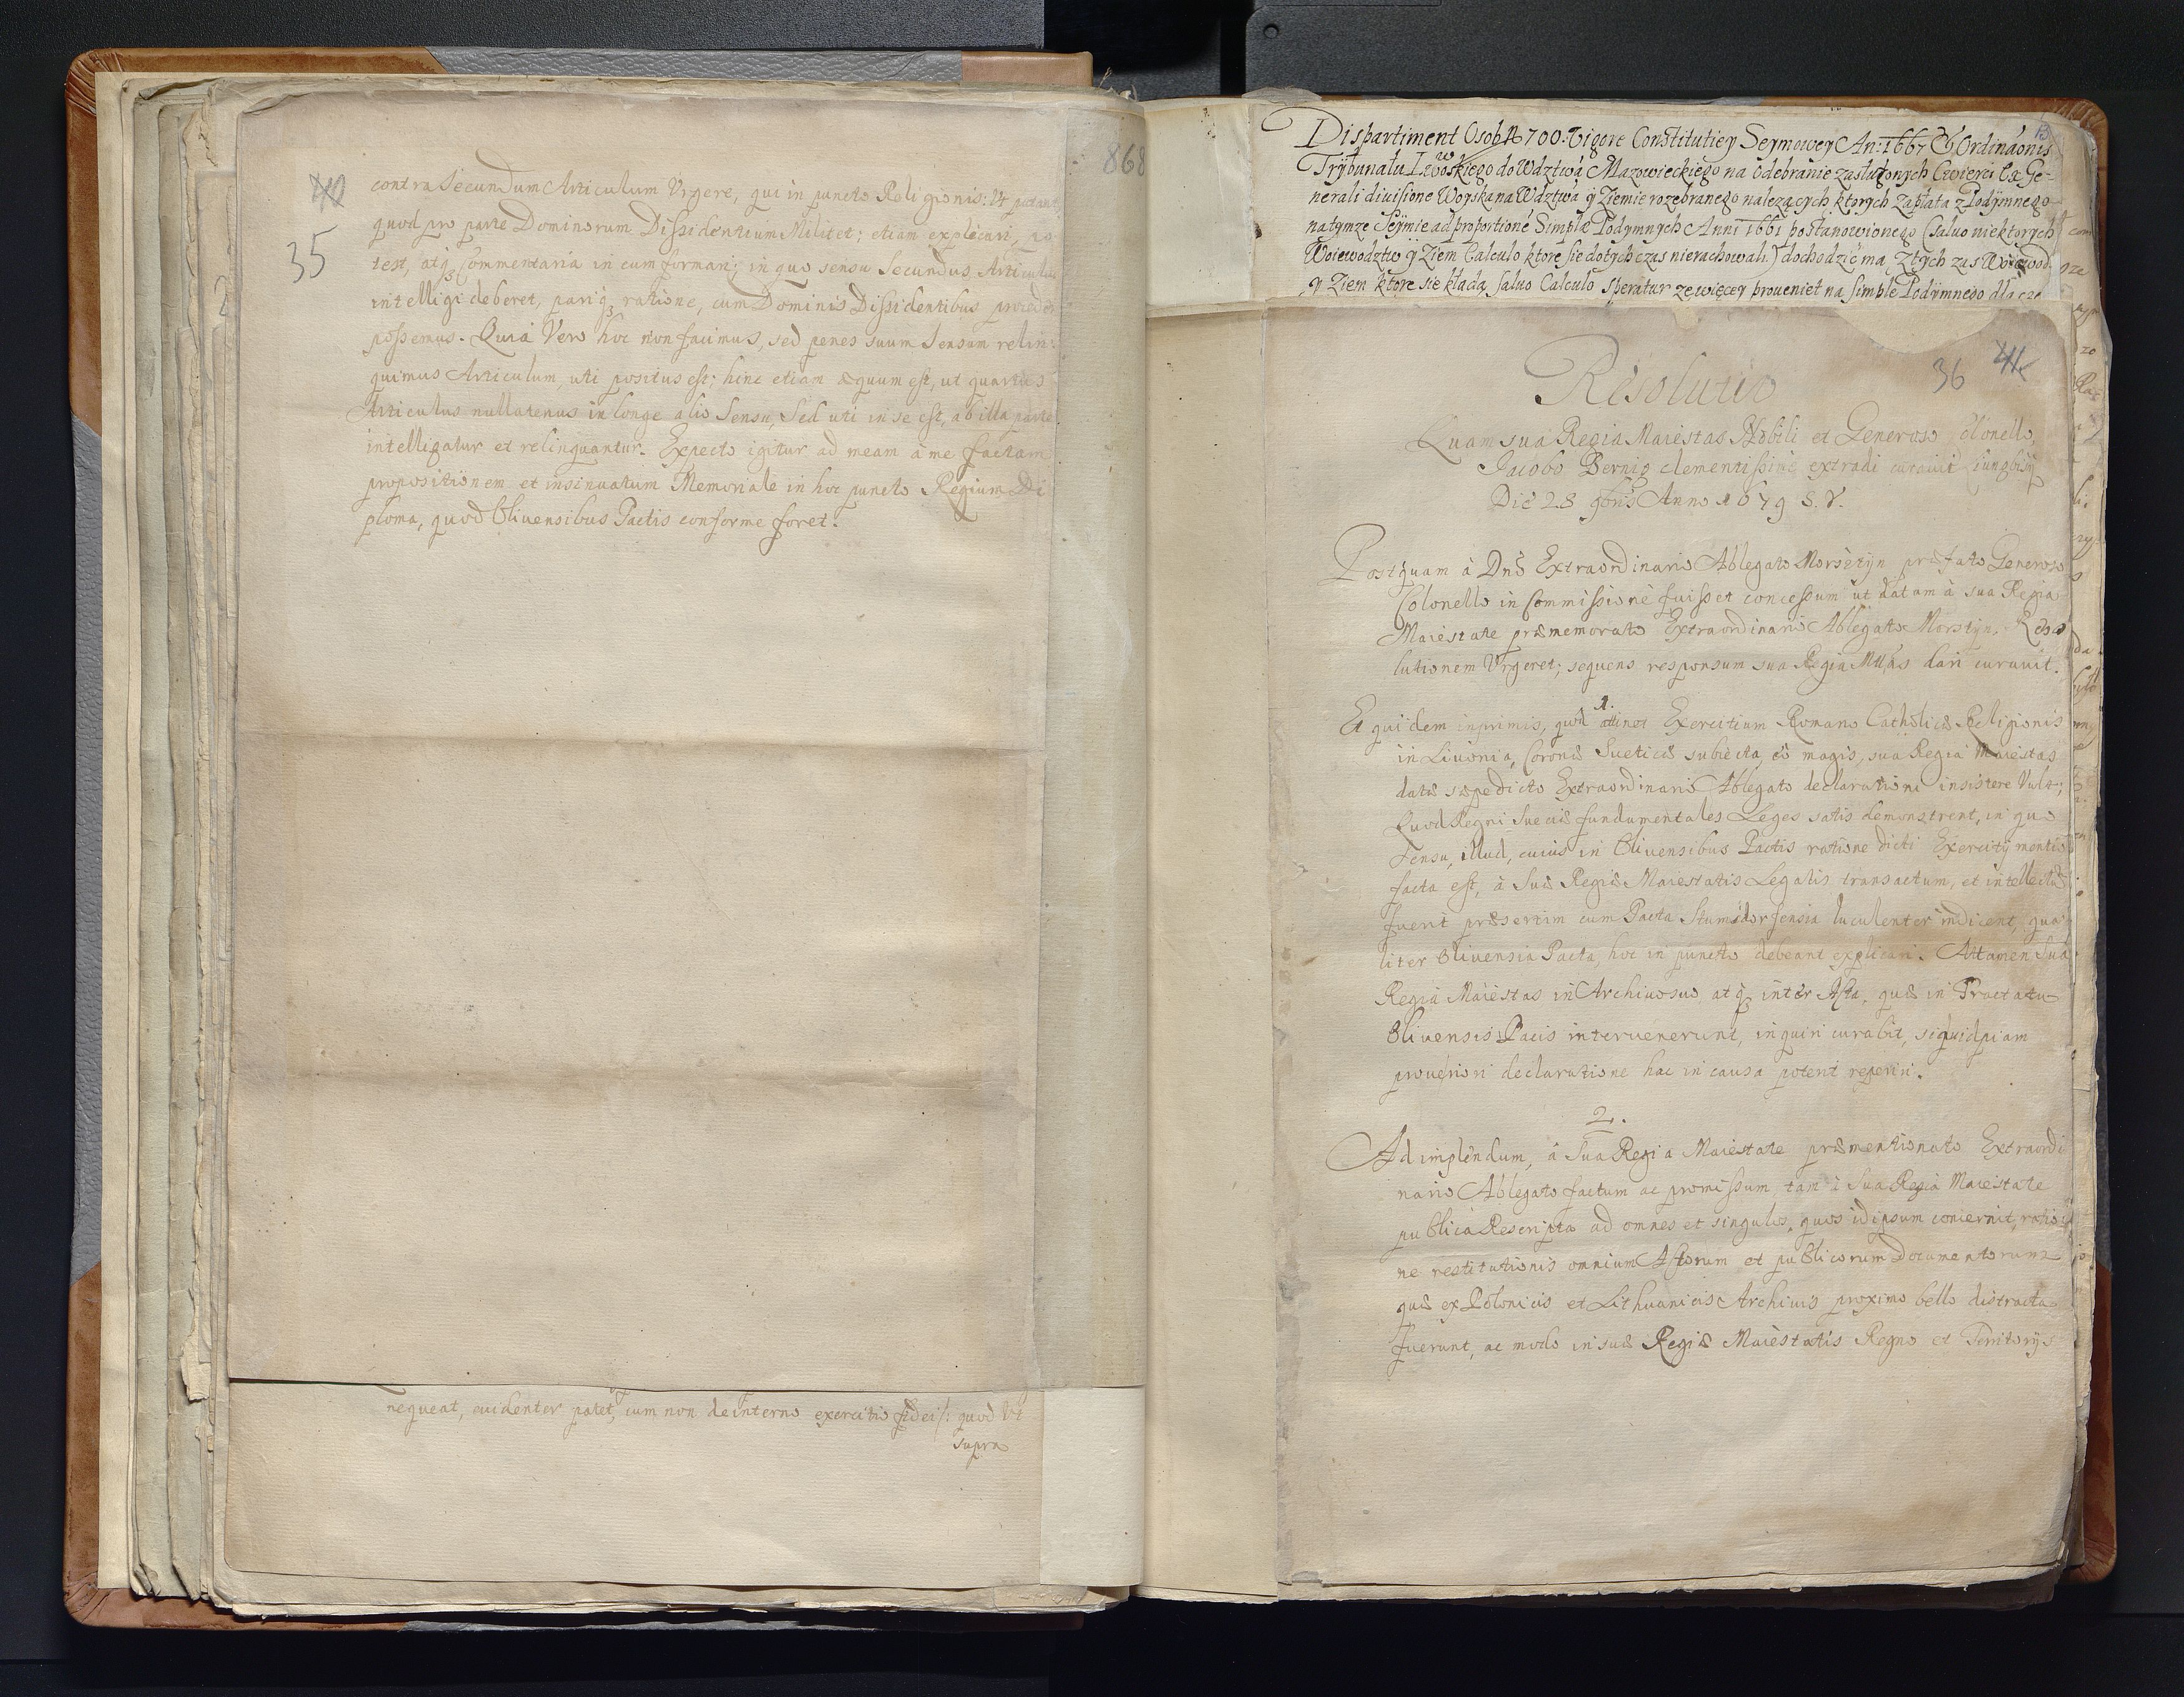 40
35
contra Secundum Articulum Urgere, qui in puncto Religionis: Ut putant
quod pro parte Dominorum Dissidentium Militet; etiam explicari, po-
test, atq, Commentaria in eum formari; in quo sensu Secundus Articulus
intelligi deberet, pariq, ratione, cum Dominis Dissidentibus procedere
possemus. Quia Vero hoc non facimus, sed penes suum Sensum relin:
quimus Articulum, uti positus est; hinc etiam æquum est, ut quartus
Articulus nullatenus in longe alio Sensu, Sed uti in se est, ab illa parte
intelligatur et relinquantur. Expecto igitur ad meam à me factam
propositionem et insinuatum Memoriale in hoc puncto Regium Di
ploma, quod Olivensibus Pactis conforme foret.
nequeat, evidenter patet, cum non de interno exercitio fidei /: quod Ut
supra
868
Dispartiment Osob 700. Vigore Constitutiey Seymowey An: 1667 & Ordinãonis
Trybunału Lwowskiego do Wdztwá Mazowieckiego na odebranie zasłużonych Cwierci Ex Ge-
nerali divisione Woyska na Wdztwá ÿ Ziemie rozebranego nalezących ktorych Zapłata z Podymnego
na tymze Seymie ad proportione Simplæ Podymnych Anni 1661 postanowionego (saluo niektorych
Woiewodztw ÿ Ziem Calculo ktore sie dotychczas nierachowali.) dochodzić ma, Ztych zas Woiewod.
ÿ Ziem ktore sie kładą saluo Calculo speratur ze więcey proueniet na simple Podymnego dla cze
36 41
Resolutio
Quam sua Regia Maiestas Nobili et Generoso Colonello,
Jacobo Bernig clementissime extradi curavit Liungbÿ
Die 28 9bris Anno 1679 S. V.
Postquam à Dno Extraordinario Ablegato Morsetyn præfato Generoso
Colonello in Commissione fuisset concessum ut datam à sua Regia
Maiestate præmemorato Extraordinario Ablegato Morstyn, Reso
lutionem Urgeret; sequens responsum sua Regia Mttas dari curavit.
1.
Et quidem inprimis, quod attinet Exercitium Romano Catholicæ Religionis
in Livonia, Coronæ Sueticæ subiecta, eo magis, sua Regia Maiestas
datæ sæpedicto Extraordinario Ablegato declarationi insistere Vult;
Quod Regni Sueciæ fundamentales Leges satis demonstrent, in quo
sensu, illud, cuius in Olivensibus Pactis ratione dicti Exercitÿ mentio
facta est, à Suæ Regiæ Maiestatis Legatis transactum, et intellectum
fuerit præsertim cum Pacta Stumsdorfensia luculenter indicent, qua
liter Olivensia Pacta, hoc in puncto debeant explicari. Attamen Sua
Regia Maiestas in Archivo suo atq, inter Acta, quæ in Tractatu
Olivensis Pacis intervenerunt, inquiri curabit, siquidpiam
proueriori declaratione hac in causa poterit reperiri.
2.
Ad implendum, à Sua Regia Maiestate præmentionato Extraordi
nario Ablegato factum ac promissum, tam à Sua Regia Maiestate
publica Rescripta ad omnes et singulos, quos id ipsum concernit, ratio
ne restitutionis omnium Actorum et publicorum Documentorum
quæ ex Polonicis et Lithuanicis Archivis proximo bello distracta
fuerunt, ac modo in suæ Regiæ Maiestatis Regno et Territorÿs